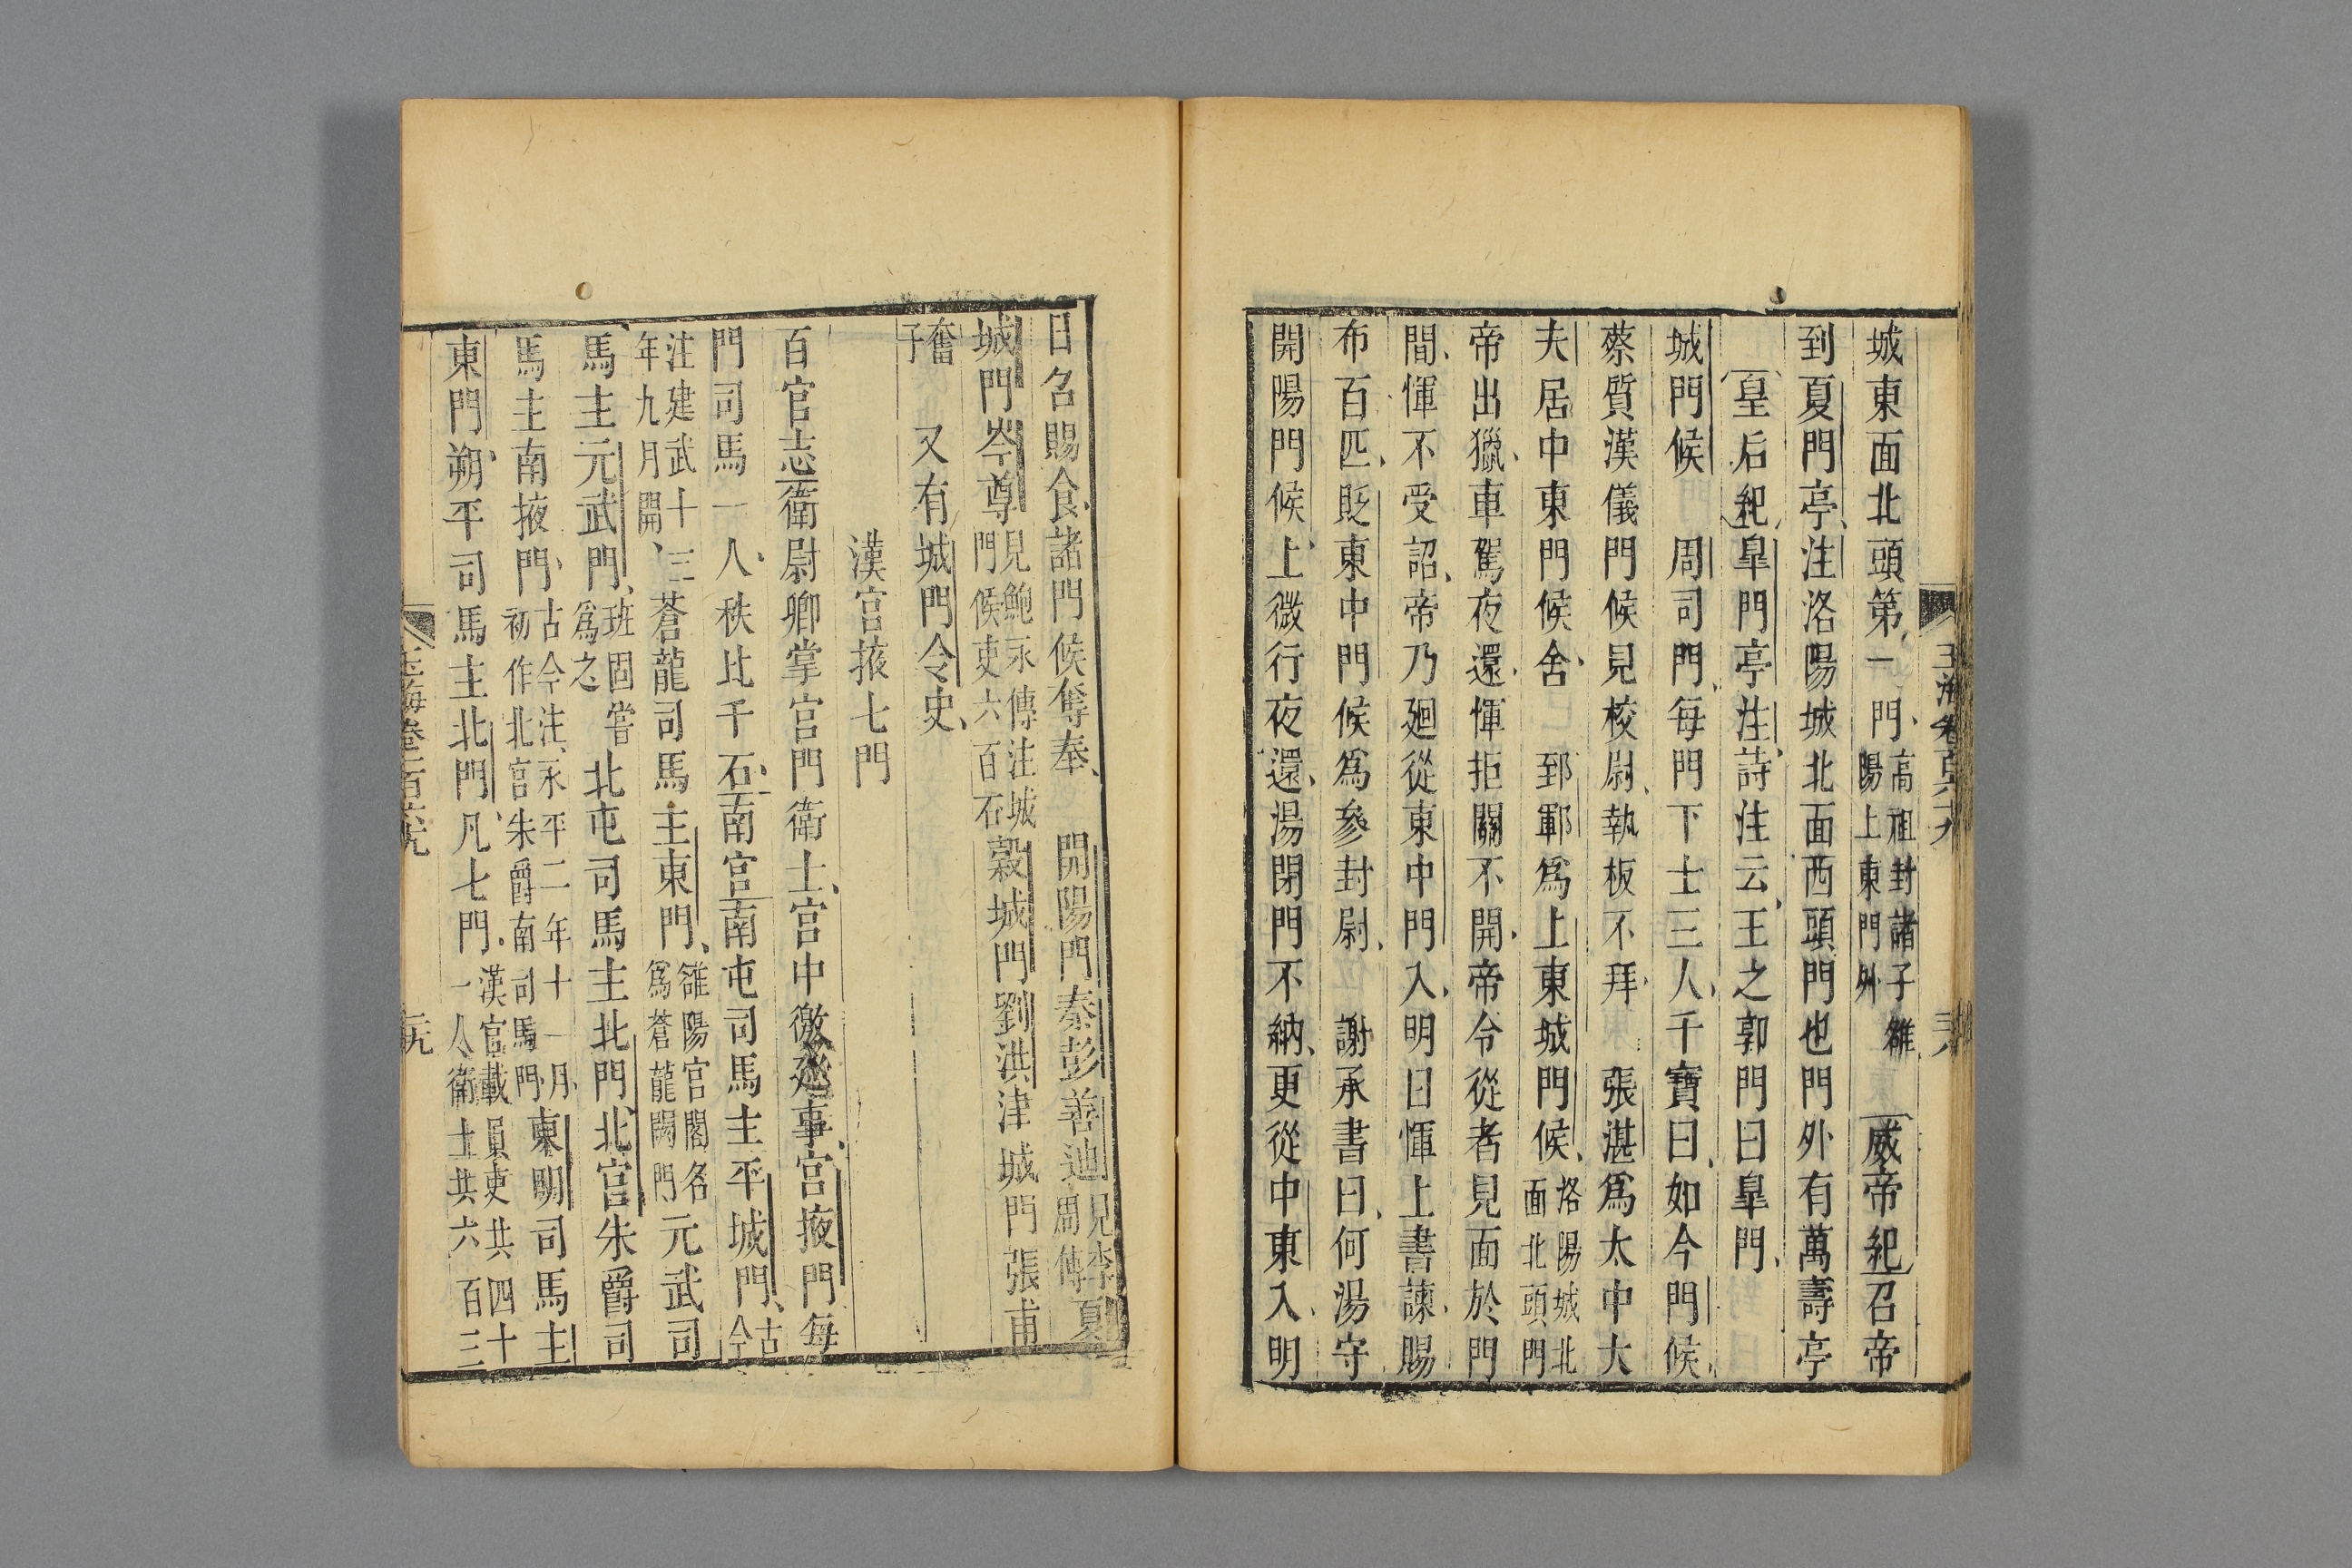 城東面北頭第一門高祖封諸子雒陽上東門外 威帝紀召帝
到夏門亭注洛陽城北面西頭門也門外有萬壽亭
皇后紀皐門亭注詩注云王之郭門曰皐門
城門候 周司門每門下士三人干寶曰如今門候
蔡質漢儀門候見校尉執板不拜 張湛爲太中大
夫居中東門候舍 郅鄆爲上東城門候洛陽城北面北頭門
帝出獵車駕夜還惲拒關不開帝令從者見面於門
間惲不受詔帝乃迴從東中門入明日惲上書諫賜
布百匹貶東中門候爲參封尉 謝承書曰何湯守
開陽門候上微行夜還湯閉門不納更從中東入明
玉海卷
日召賜食諸門候奪奉 開陽門秦彭善迪見李周傳夏
城門岑尊見鮑永傳注城門候吏六百石穀城門劉洪津城門張甫
奮子 又有城門令史
漢宫掖七門
百官志衛尉卿掌宫門衛士宫中徼廵事宫掖門每
門司馬一人秩比千石南宫南屯司馬主平城門古今
注建武十三年九月開蒼龍司馬主東門雒陽宫閣名爲蒼龍闕門元武司
馬主元武門班固嘗爲之北屯司馬主北門北宫朱爵司
馬主南掖門古今注永平二年十一月初作北宫朱爵南司馬門東明司馬主
東門朔平司馬主北門凡七門漢官載員吏共四十一人衛士共六百三
玉海卷一百六十九